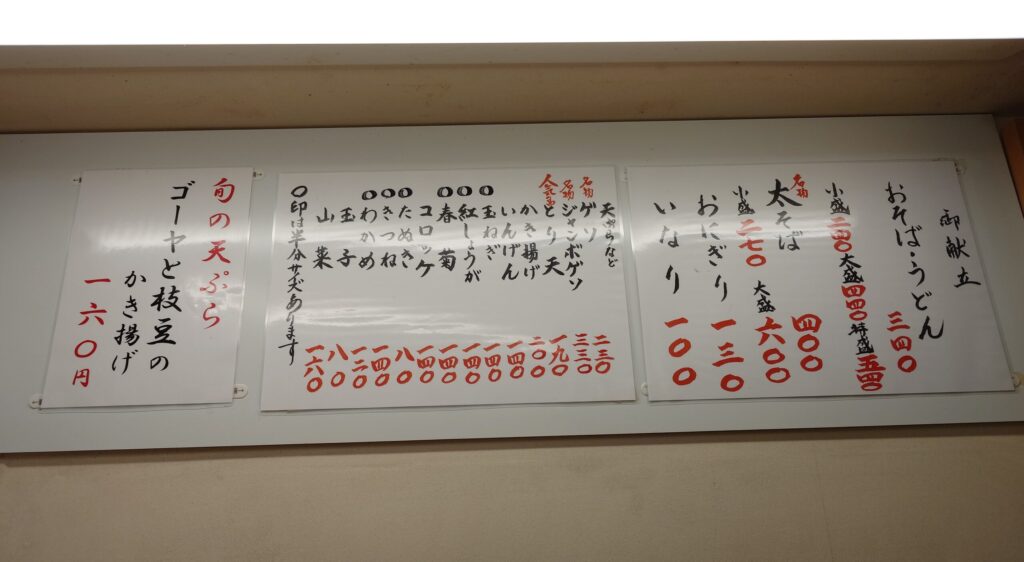 御献立
おそば・うどん 三四〇
小盛 二四〇 大盛 四四〇 特盛 五四〇
名物 太そば 四〇〇
小盛 二七〇 大盛 六〇〇
おにぎり 一三〇
いなり 一〇〇
天ぷらなど
名物 ゲソ 二三〇
名物 ジャンボゲソ 三三〇
とり天 一九〇
かき揚げ 二〇〇
いんげん 一四〇
〇玉ねぎ 一四〇
〇紅しょうが 一四〇
〇春菊 一四〇
コロッケ 一四〇
〇たぬき 八〇
〇きつね 一四〇
〇わかめ 一二〇
玉子 八〇
山菜 一六〇
〇印は半分サイズあります
旬の天ぷら
ゴーヤと枝豆の
かき揚げ
一六〇円